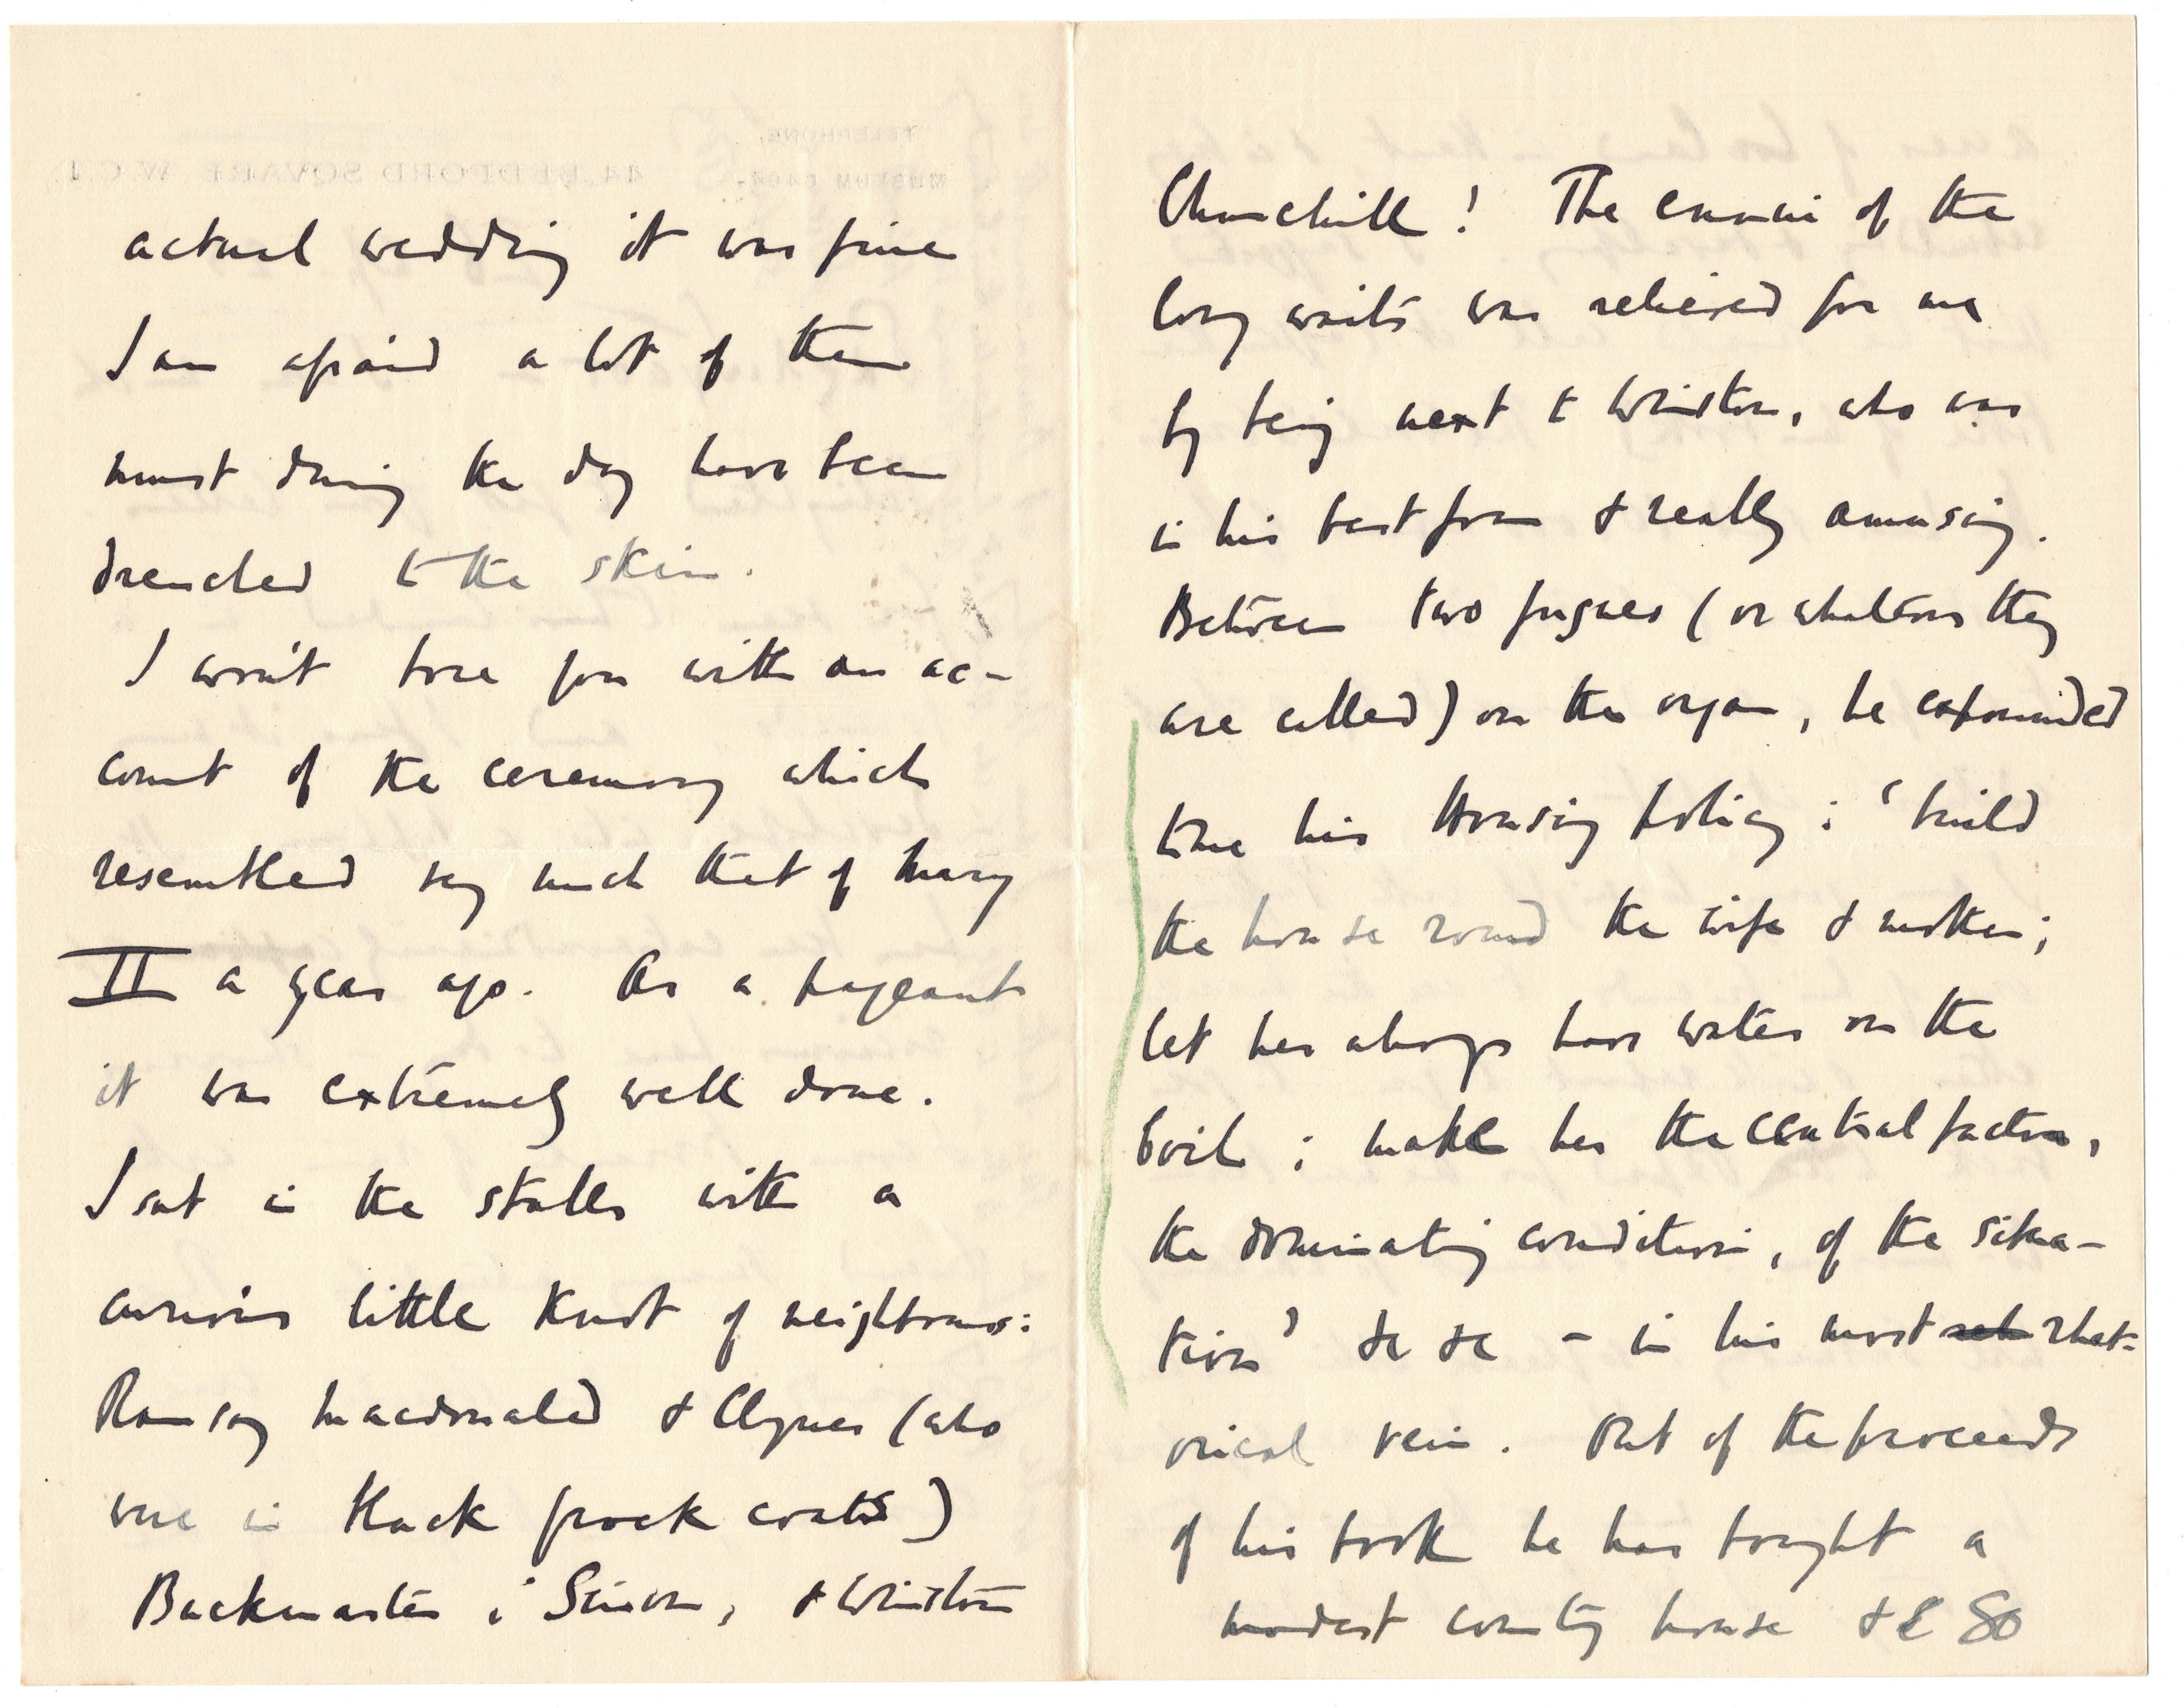 actual wedding it was fine
I am afraid a lot of them
must during the day have been
drenched to the skin.
I won't bore you with an ac-
count of the ceremony which
resembled very much that of Mary
II a year ago. As a pageant
it was extremely well done.
I sat in the stalls with a
curious little knot of neighbours:
Ramsay Macdonald & Clynes (who
were in black frock coats)
Buckmaster; Simon, & Winston
Churchill! The ennui of the
long waits was relieved for me
by being next to Winston, who was
in his best form & really amusing.
Between two fugues (or whatever they
are called) on the organ, he expounded
to me his Housing policy; 'build
the house round the wife & mother;
let her always have water on the
boil; make her the central factor,
the dominating condition, of the situa-
tion' &c &c – in his most rhet-
orical vein. Out of the proceeds
of his book he has bought a
modest country house & 80
TELEPHONE,
MUSEUM
44, BEDFORD SQUARE, W.C.1.